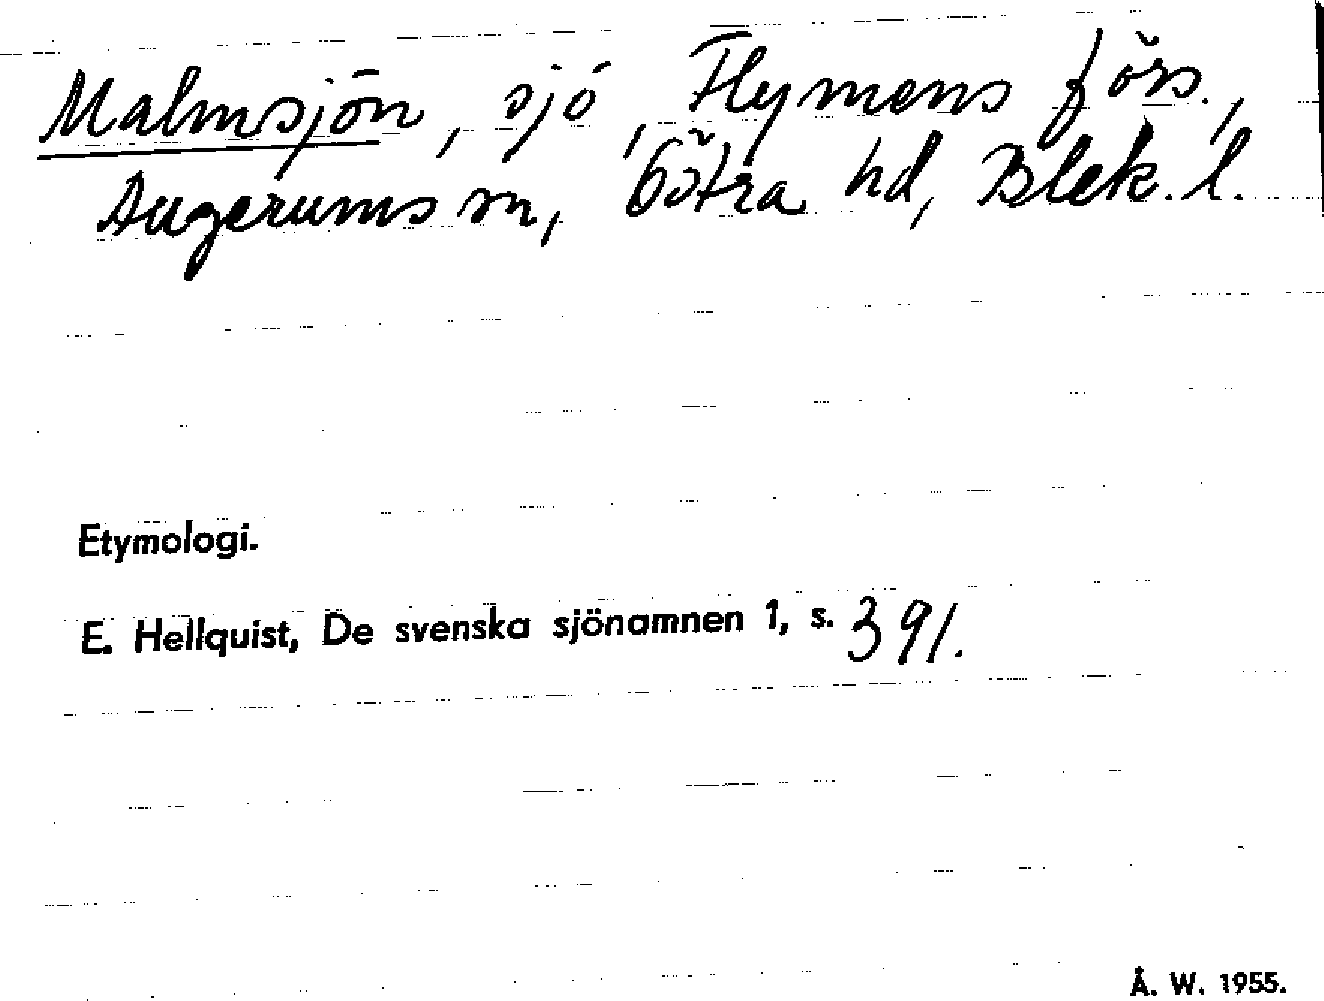 Malmsjön, sjö, Flymens förs.,
Augerums sn, Östra hd, Blek. l.
Etymologi.
E. Hellquist, De svenska sjönamnen 1, s. 391.
Å. W. 1955.